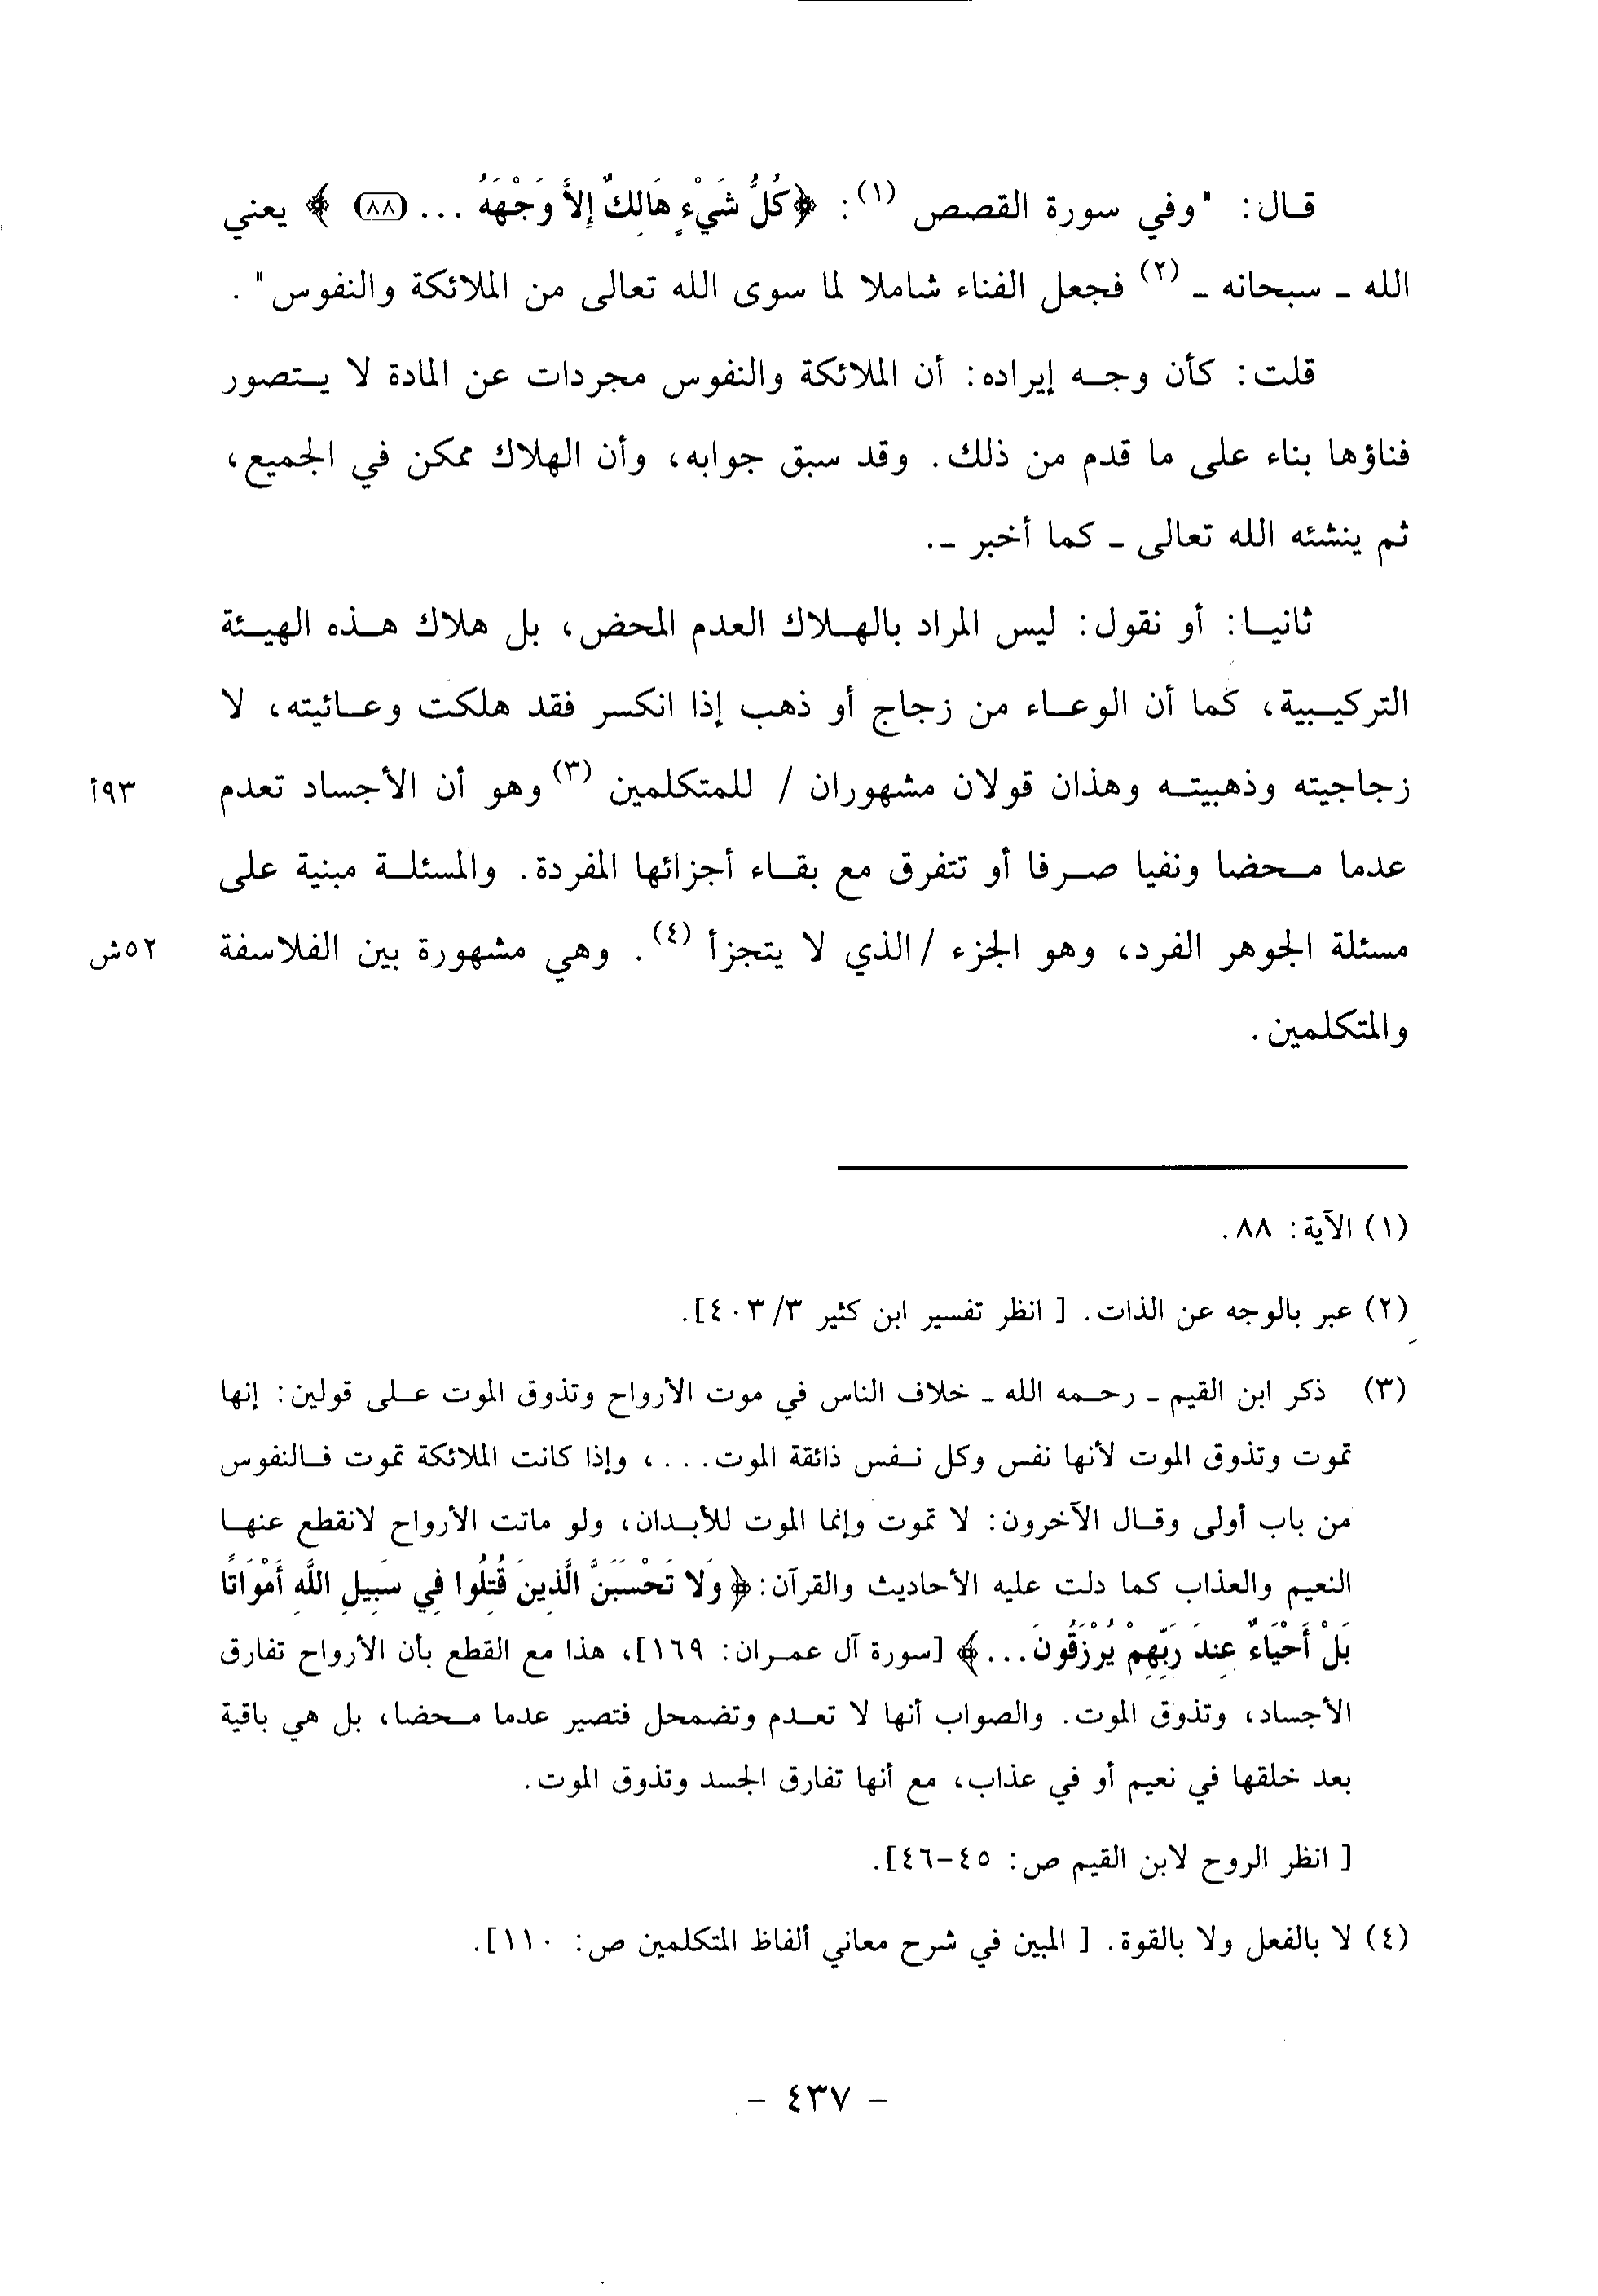 قال: "وفي سورة القصص (١): ﴿كُلُّ شَيْءٍ هَالِكٌ إِلاَّ وَجْهَهُ ... (٨٨)﴾ يعني
الله ـ سبحانه ـ (٢) فجعل الفناء شاملا لما سوى الله تعالى من الملائكة والنفوس".
قلت: كأن وجه إيراده: أن الملائكة والنفوس مجردات عن المادة لا يتصور
فناؤها بناء على ما قدم من ذلك. وقد سبق جوابه، وأن الهلاك ممكن في الجميع،
ثم ينشئه الله تعالى ـ كما أخبر ـ.
ثانيا: أو نقول: ليس المراد بالهلاك العدم المحض، بل هلاك هذه الهيئة
التركيبية، كما أن الوعاء من زجاج أو ذهب إذا انكسر فقد هلكت وعائيته، لا
زجاجيته وذهبيته وهذان قولان مشهوران / للمتكلمين (٣) وهو أن الأجساد تعدم ٩٣أ
عدما محضا ونفيا صرفا أو تتفرق مع بقاء أجزائها المفردة. والمسئلة مبنية على
مسئلة الجوهر الفرد، وهو الجزء / الذي لا يتجزأ (٤). وهي مشهورة بين الفلاسفة ٥٢ش
والمتكلمين.
(١) الآية: ٨٨.
(٢) عبر بالوجه عن الذات. [ انظر تفسير ابن كثير ٤٠٣/٣].
(٣) ذكر ابن القيم ـ رحمه الله ـ خلاف الناس في موت الأرواح وتذوق الموت على قولين: إنها
تموت وتذوق الموت لأنها نفس وكل نفس ذائقة الموت...، وإذا كانت الملائكة تموت فالنفوس
من باب أولى وقال الآخرون: لا تموت وإنما الموت للأبدان، ولو ماتت الأرواح لانقطع عنها
النعيم والعذاب كما دلت عليه الأحاديث والقرآن: ﴿وَلا تَحْسَبَنَّ الَّذِينَ قُتِلُوا فِي سَبِيلِ اللَّهِ أَمْوَاتًا
بَلْ أَحْيَاءٌ عِندَ رَبِّهِمْ يُرْزَقُونَ...﴾ [سورة آل عمران: ١٦٩]، هذا مع القطع بأن الأرواح تفارق
الأجساد، وتذوق الموت. والصواب أنها لا تعدم وتضمحل فتصير عدما محضا، بل هي باقية
بعد خلقها في نعيم أو في عذاب، مع أنها تفارق الجسد وتذوق الموت.
[ انظر الروح لابن القيم ص: ٤٥-٤٦].
(٤) لا بالفعل ولا بالقوة. [ المبين في شرح معاني ألفاظ المتكلمين ص: ١١٠].
- ٤٣٧ -